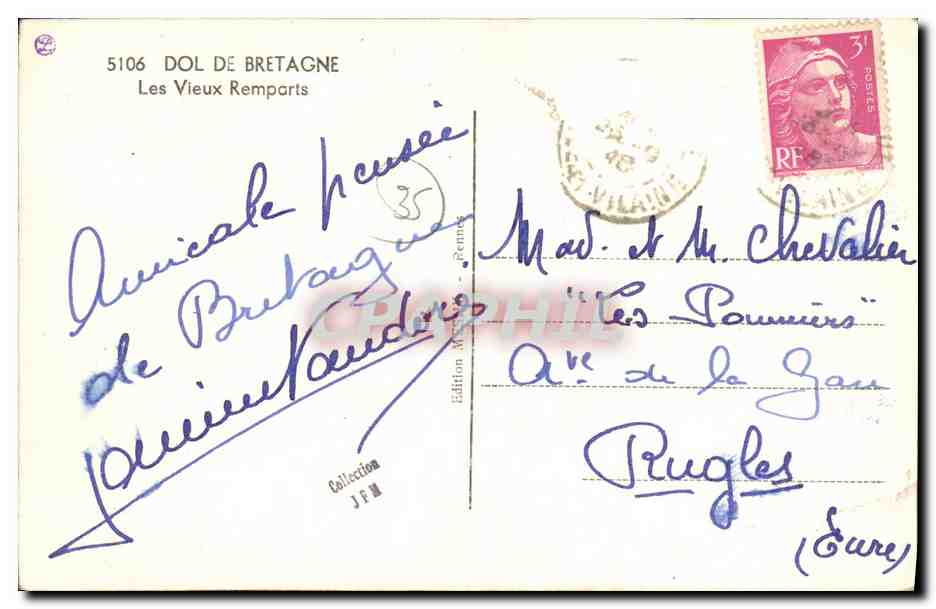 5106 DOL DE BRETAGNE
Les Vieux Remparts
Amicale pensée
de Bretagne
35
Collection
J F M
Edition
Rennes
3f
POSTES
RF
ET-VILAINE
Mad. et M. Chevalier
"Les Pommiers"
Ave de la Gare
Rugles
(Eure)
CPAPHIL